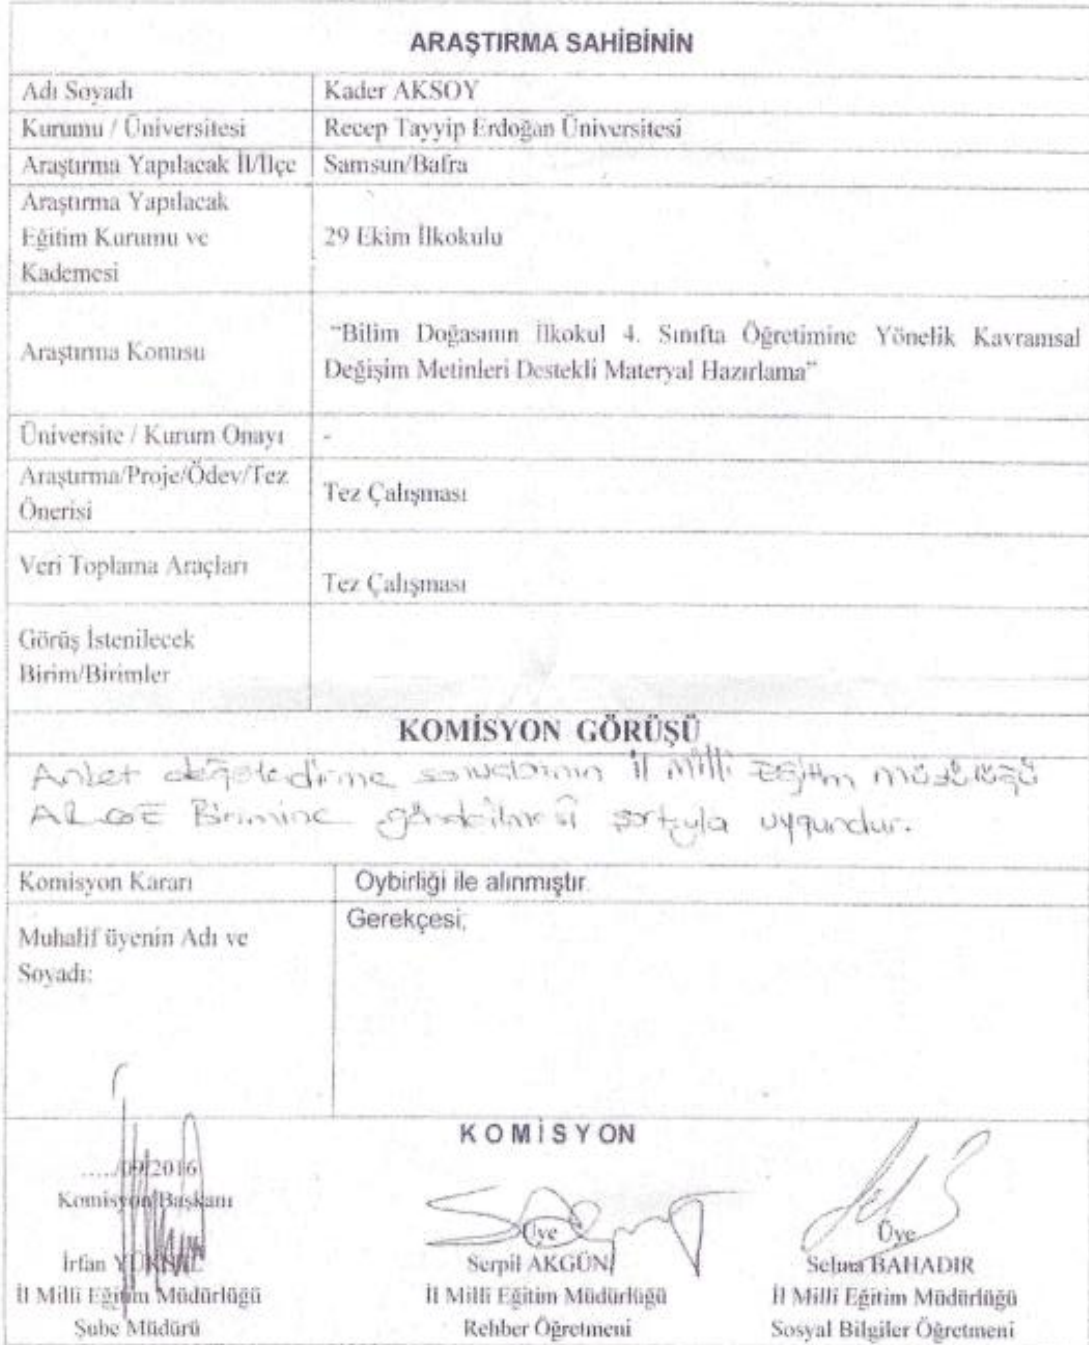 ARAŞTIRMA SAHİBİNİN
Adı Soyadı Kader AKSOY
Kurumu / Üniversitesi Recep Tayyip Erdoğan Üniversitesi
Araştırma Yapılacak İl/İlçe Samsun/Bafra
Araştırma Yapılacak
Eğitim Kurumu ve 29 Ekim İlkokulu
Kademesi
Araştırma Konusu “Bilim Doğasının İlkokul 4. Sınıfta Öğretimine Yönelik Kavramsal
Değişim Metinleri Destekli Materyal Hazırlama”
Üniversite / Kurum Onayı -
Araştırma/Proje/Ödev/Tez
Önerisi Tez Çalışması
Veri Toplama Araçları Tez Çalışması
Görüş İstenilecek
Birim/Birimler
KOMİSYON GÖRÜŞÜ
Anket değerlendirme sonuçlarının İl Milli Eğitim Müdürlüğü
ARGE Birimine gönderilmesi şartıyla uygundur.
Komisyon Kararı Oybirliği ile alınmıştır.
Muhalif üyenin Adı ve Gerekçesi;
Soyadı:
KOMİSYON
...../09/2016
Komisyon Başkanı
Üye Üye
İrfan YÜKSEL Serpil AKGÜN Selma BAHADIR
İl Milli Eğitim Müdürlüğü İl Milli Eğitim Müdürlüğü İl Milli Eğitim Müdürlüğü
Şube Müdürü Rehber Öğretmeni Sosyal Bilgiler Öğretmeni